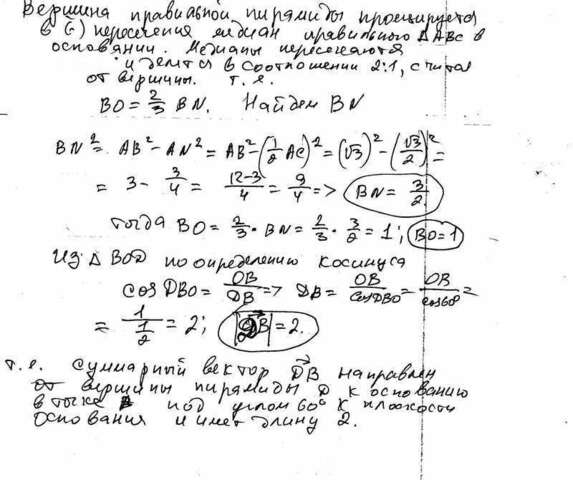 Вершина правильной пирамиды проецируется
в (·) пересечения медиан правильного ΔABC в
основании. Медианы пересекаются
и делятся в соотношении 2:1, считая
от вершины. т.е.
BO = 2/3 BN. Найдем BN
BN² = AB² - AN² = AB² - (1/2 AC)² = (√3)² - (√3/2)² =
= 3 - 3/4 = (12-3)/4 = 9/4 => BN = 3/2
Тогда BO = 2/3 · BN = 2/3 · 3/2 = 1; BO = 1
Из Δ BOD по определению косинуса
cos DBO = OB/DB => DB = OB/cos DBO = OB/cos 60° =
= 1/(1/2) = 2; |DB| = 2.
т.е. Суммарный вектор DB направлен
от вершины пирамиды D к основанию
в точке под углом 60° к плоскости
основания и имеет длину 2.